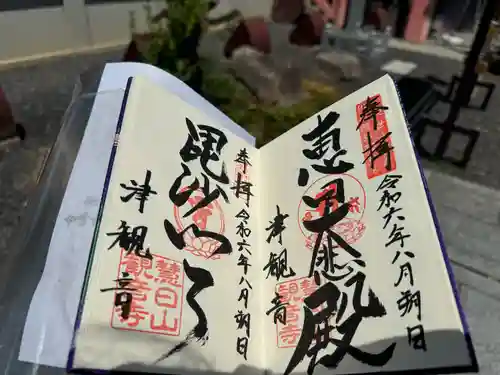 奉拝
令和六年八月朔日
恵日大悲殿
津観音
奉拝
令和六年八月朔日
毘沙門天
慧日山
観音寺
津観音